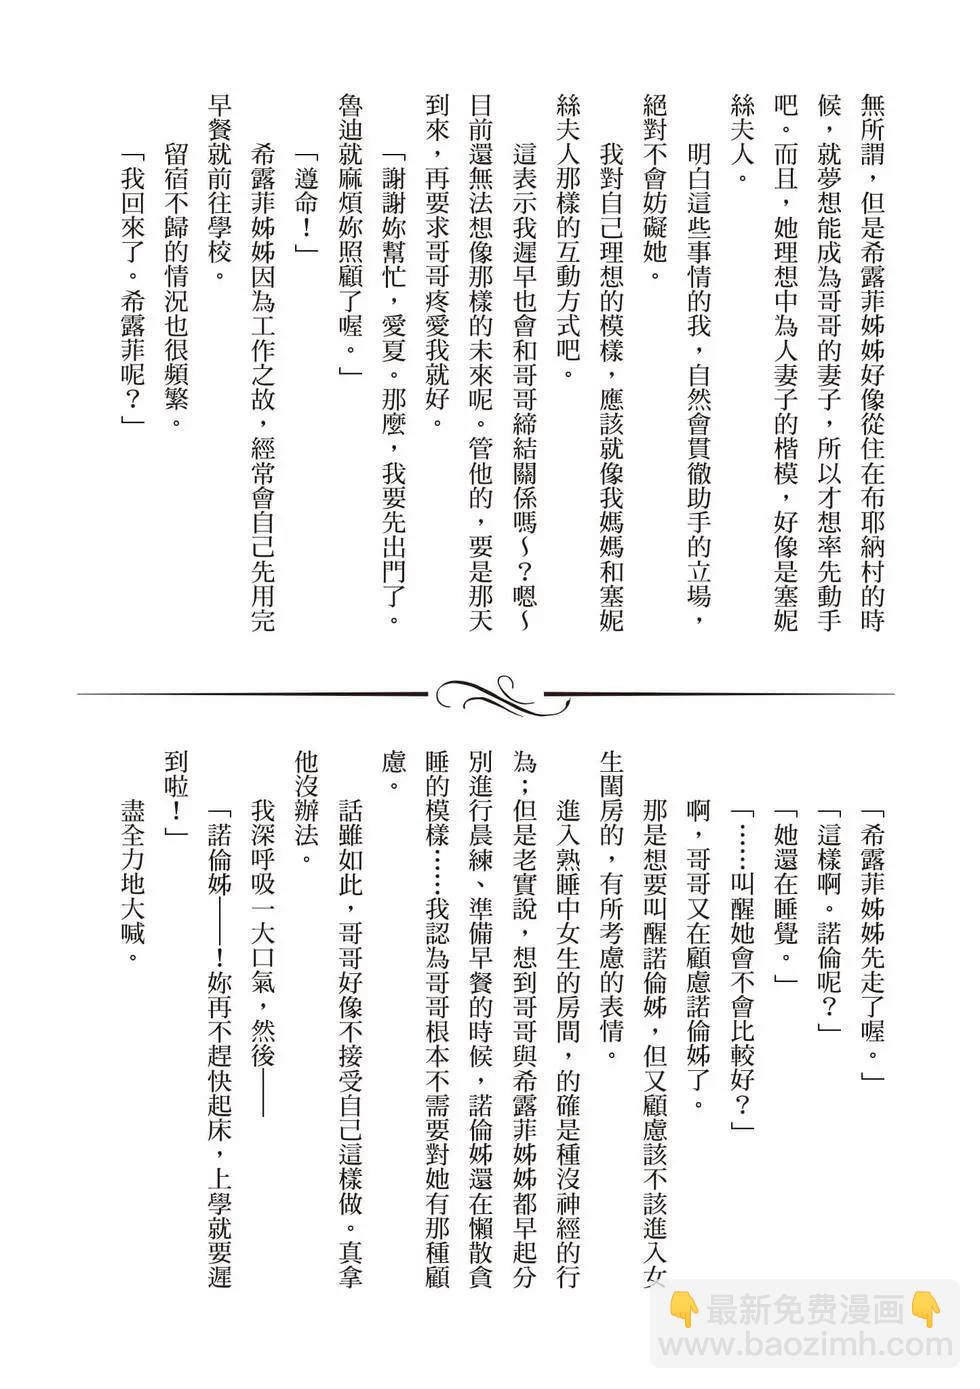 無所謂，但是希露菲姊姊好像從住在布耶納村的時
候，就夢想能成為哥哥的妻子，所以才想率先動手
吧。而且，她理想中為人妻子的楷模，好像是塞妮
絲夫人。
明白這些事情的我，自然會貫徹助手的立場，
絕對不會妨礙她。
我對自己理想的模樣，應該就像我媽媽和塞妮
絲夫人那樣的互動方式吧。
這表示我遲早也會和哥哥締結關係嗎～？嗯～
目前還無法想像那樣的未來呢。管他的，要是那天
到來，再要求哥哥疼愛我就好。
「謝謝妳幫忙，愛夏。那麼，我要先出門了。
魯迪就麻煩妳照顧了喔。」
「遵命！」
希露菲姊姊因為工作之故，經常會自己先用完
早餐就前往學校。
留宿不歸的情況也很頻繁。
「我回來了。希露菲呢？」
「希露菲姊姊先走了喔。」
「這樣啊。諾倫呢？」
「她還在睡覺。」
「……叫醒她會不會比較好？」
啊，哥哥又在顧慮諾倫姊了。
那是想要叫醒諾倫姊，但又顧慮該不該進入女
生閨房的，有所考慮的表情。
進入熟睡中女生的房間，的確是種沒神經的行
為；但是老實說，想到哥哥與希露菲姊姊都早起分
別進行晨練、準備早餐的時候，諾倫姊還在懶散貪
睡的模樣……我認為哥哥根本不需要對她有那種顧
慮。
話雖如此，哥哥好像不接受自己這樣做。真拿
他沒辦法。
我深呼吸一大口氣，然後——
「諾倫姊——！妳再不趕快起床，上學就要遲
到啦！」
盡全力地大喊。
👇最新免费漫画👇
www.baozimh.com